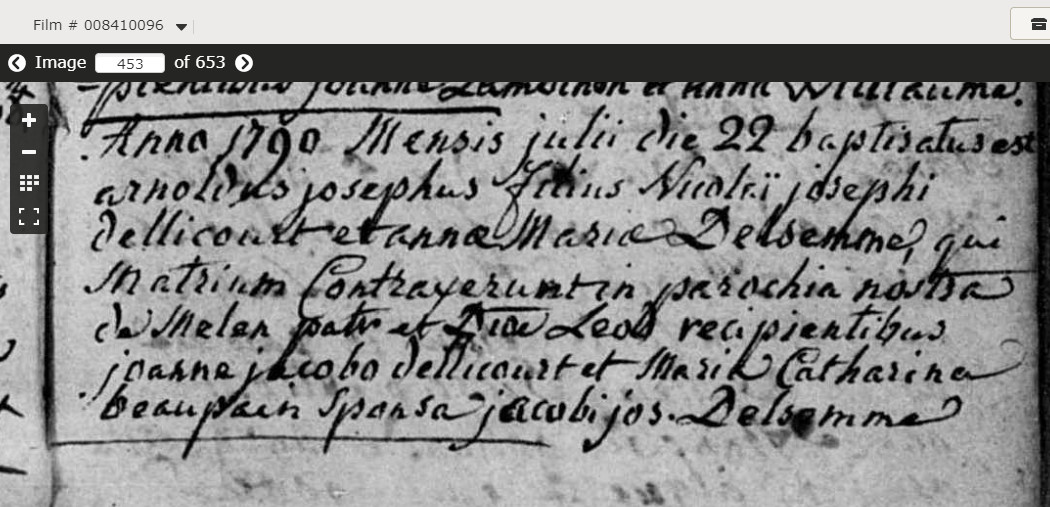 Film # 008410096
Image 453 of 653
joanne Lambinon et anna Willaume.
Anno 1790 Mensis julii die 22 baptisatus est
arnoldus josephus filius Nicolaï josephi
Dellicourt et annæ Mariæ Delsemme, qui
Matrium Contraxerunt in parochia nostra
de Melen patr et Diœ Leod recipientibus
joanne jacobo dellicourt et Maria Catharina
beaupain Sponsa jacobi jos. Delsemme